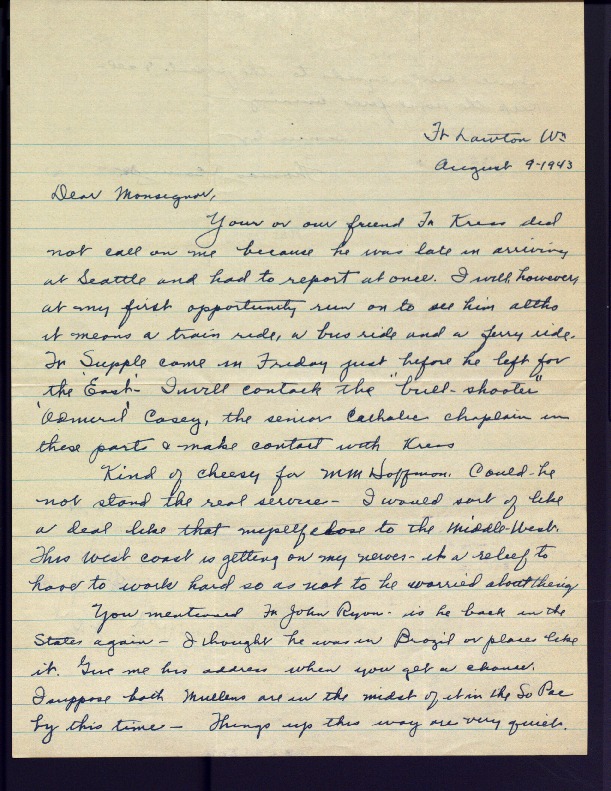 Ft Lawton Wn
August 9-1943
Dear Monsignor,
Your or our friend Fr Kress did
not call on me because he was late in arriving
at Seattle and had to report at once. I will, however,
at my first opportunity run on to see him altho
it means a train ride, a bus ride and a ferry ride.
Fr Supple came in Friday just before he left for
the "East"- I will contact the "bull-shooter"
'Admiral' Casey, the senior Catholic chaplain in
these parts & make contact with Kress
Kind of cheesy for Hoffman. Could he
not stand the real service- I would sort of like
a deal like that myself close to the Middle-West.
This west coast is getting on my nerves- its a relief to
have to work hard so as not to be worried about being
You mentioned Fr John Ryan- is he back in the
States again- I thought he was in Brazil or places like
it. Give me his address when you get a chance.
I suppose both Mullens are in the midst of it in the So Pac
by this time- Things up this way are very quiet.